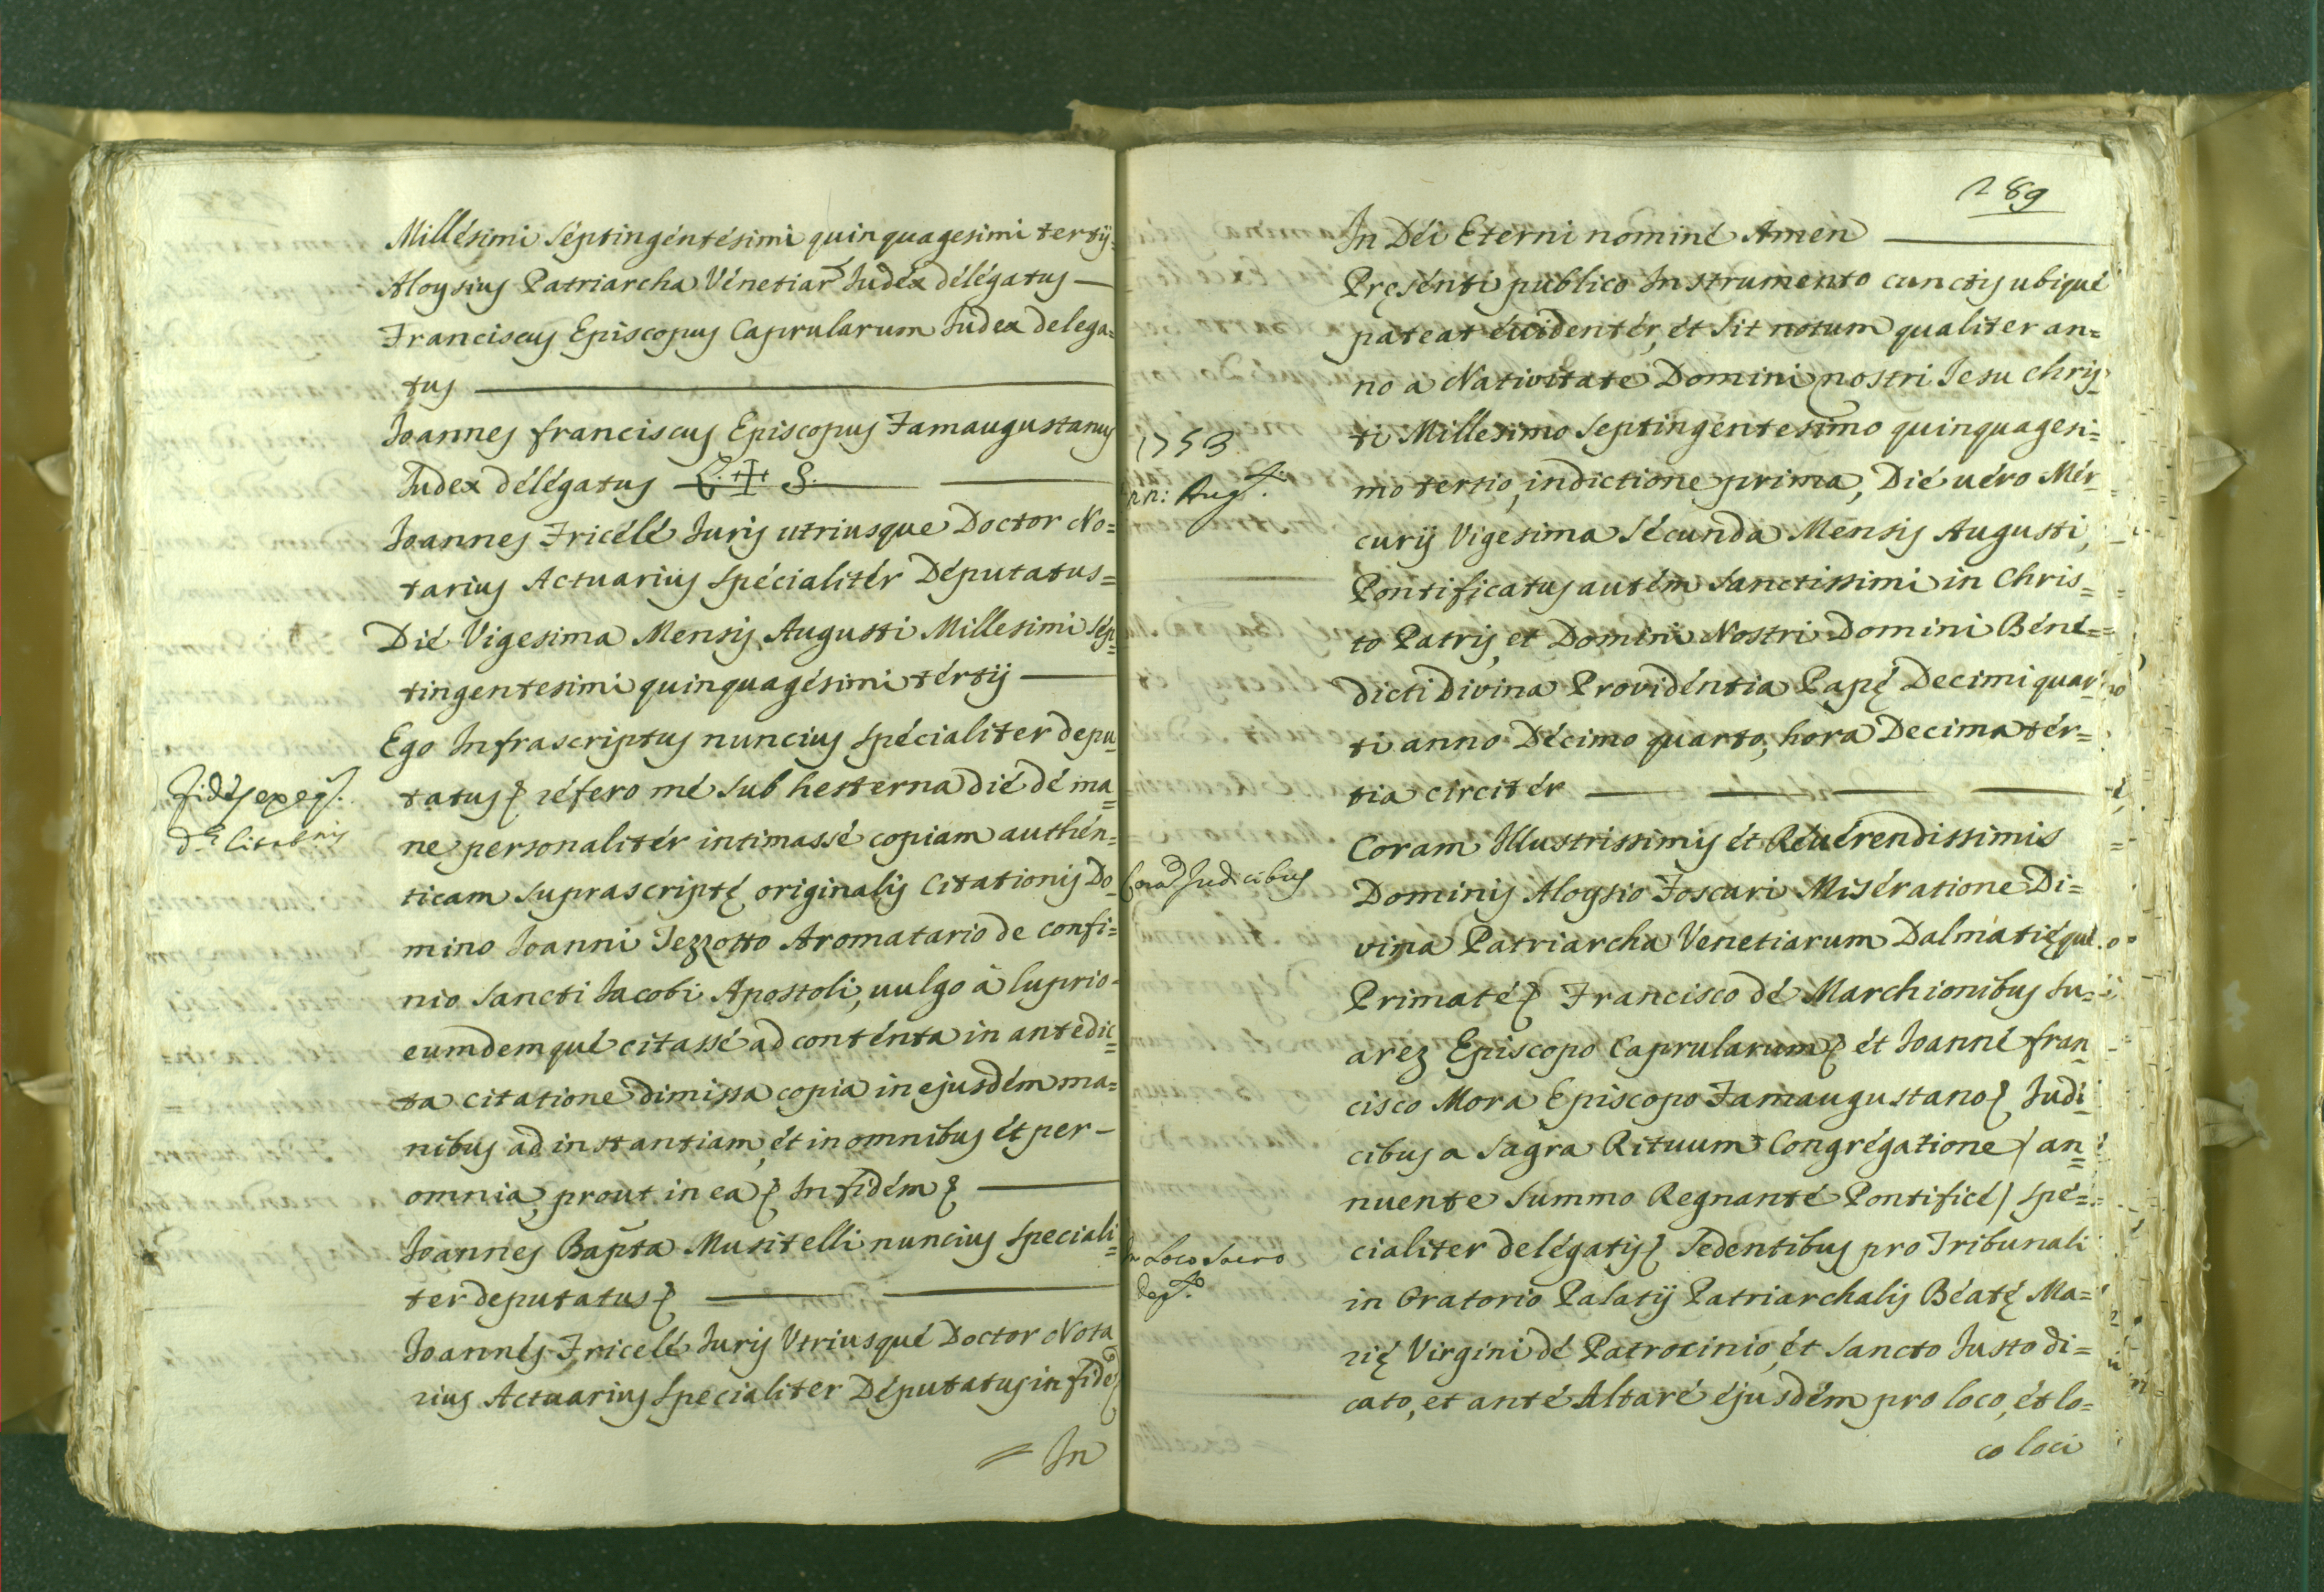 Millésimi Séptingéntésimi quinquagesimi tertÿ
Aloysius Patriarcha Vénetiar Iudéx délégatus —
Franciscus Episcopus Caprularum Iudex delega=
tus —
Ioannes franciscus Episcopus Famaugustanus
Iudex délégatus L. ✝ S. —
Ioannes Fricélé Iuris utriusque Doctor No=
tarius Actuarius Spécialitér Députatus=
Dié Vigesima Mensis Augusti Millesimi Sép=
tingentesimi quinquagésimi tértÿ —
Ego Infrascriptus nuncius Spécialiter depu=
tatus réfero mé Sub hesterna dié dé ma=
ne personalitér intimassé copiam authén=
ticam Suprascriptę originalis Citationis Do=
mino Ioanni Tezzotto Aromatario de confi=
nio Sancti Iacobi Apostoli, uulgo à luprio=
eumdemqué citassé ad conténta in antedic=
ta citatione dimissa copia in ejusdém ma=
nibus ad instantiam, ét in omnibus ét per —
omnia, prout in ea In fidém —
Ioannes Bapta Musitelli nuncius Speciali=
ter deputatus —
Ioannés Fricelé Iuris Utriusqué Doctor Nota
rius Actuarius Specialiter Députatus in fide
= In
Fides
289
In Déi Eterni nominé Amen —
Pręsénti publico Instrumento cunctis ubiqué
pateat éuidentér, ét Sit notum qualiter an=
no a Nativitate Domini nostri Iesu Chris=
ti Millesimo Septingéntesimo quinquagesi=
mo tertio, indictione prima, Dié uéro Mér=
curÿ Vigesima Sécunda Mensis Augusti,
Pontificatus autém Sanctissimi in Chris=
to Patris, et Domini Nostri Domini Béné=
dicti Divina Providéntia Papę Decimi quar=
ti anno Décimo quarto, hora Decima tér=
tia circitér —
Coram Illustrissimis ét Réuérendissimis
Dominis Aloysio Foscari Miseratione Di=
vina Patriarcha Venetiarum Dalmatięqué
Primaté Francisco dé Marchionibus Su=
arez Episcopo Caprularum ét Ioanné fran=
cisco Mora Episcopo Famaugustano Iudi=
cibus a Sagra Rituum Congrégatione / an=
nuente Summo Regnanté Pontificé / Spé=
cialiter delégatis Sedentibus pro Tribunali
in Oratorio Palatÿ Patriarchalis Béatę Ma=
rię Virgini dé Patrocinio, ét Sancto Iusto di=
cato, et anté Altaré éjusdém pro loco, ét lo=
co loci
1753.
22: Augti.
Corã Judicibus
In Loco Sacro